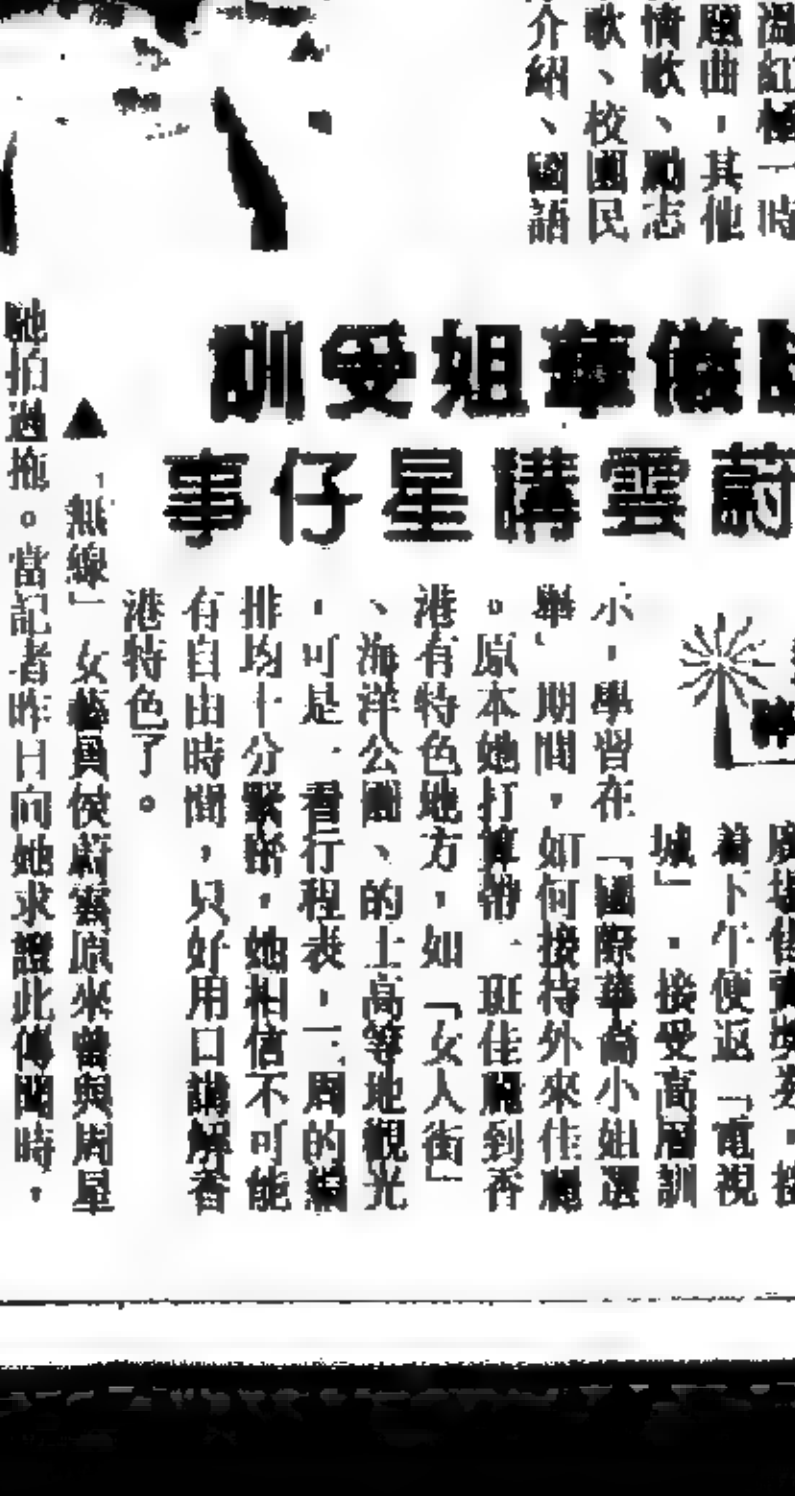 溫紅極一時
題曲，其他
情歌、勵志
歌、校園民
介紹、國語
儀華姐受訓
蔚雲講星仔事
着下午便返「電視
城」，接受高層訓
示，學習在「國際華裔小姐選
舉」期間，如何接待外來佳麗
。原本她打算帶一班佳麗到香
港有特色地方，如「女人街」
、海洋公園、的士高等地觀光
，可是一看行程表，一周的編
排均十分緊密，她相信不可能
有自由時間，只好用口講解香
港特色了。
▲「無線」女藝員侯蔚雲原來曾與周星
馳拍過拖。當記者昨日向她求證此傳聞時，